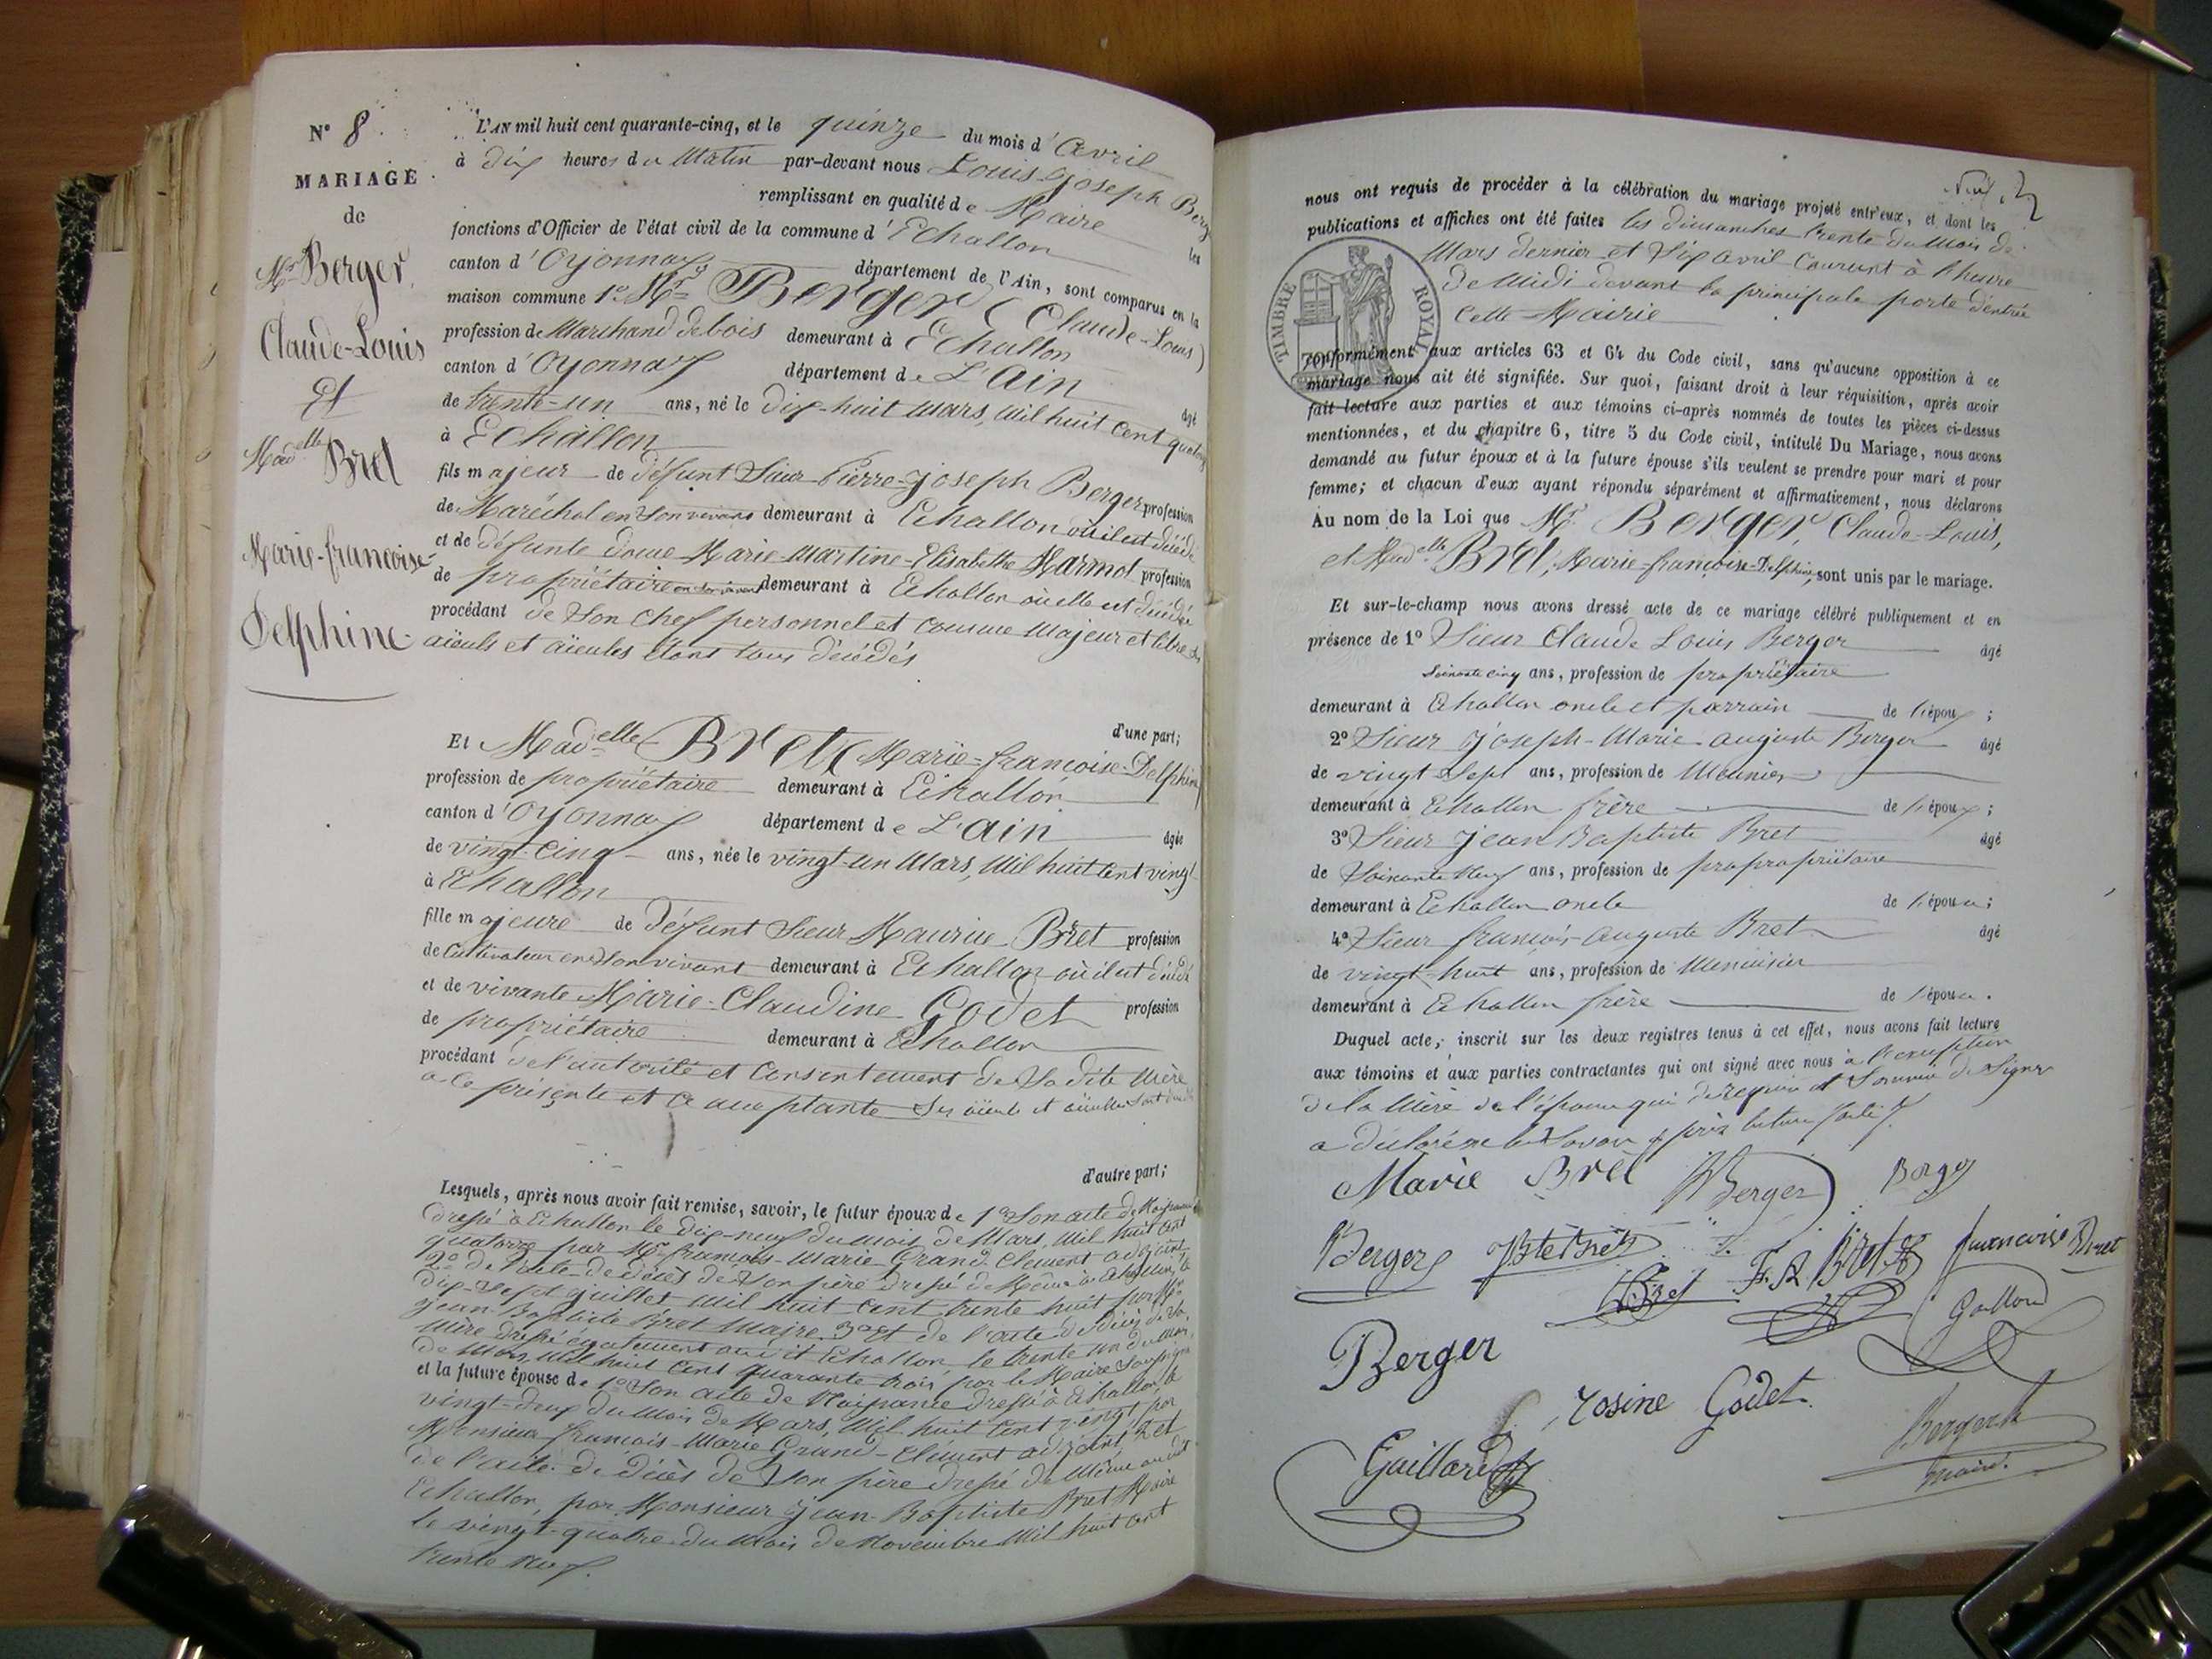 N° 8.
MARIAGE
de
Mr Berger,
Claude-Louis
Et
Madelle Bret
Marie-francoise-
Delphine
L'AN mil huit cent quarante-cinq, et le quinze du mois d'Avril
à dix heures du Matin par-devant nous Louis Joseph Berg
remplissant en qualité de Maire les
fonctions d'Officier de l'état civil de la commune d'Echallon
canton d'Oyonnax département de l'Ain, sont comparus en la
maison commune 1° Mr Berger (Claude-Louis)
profession de Marchand de bois demeurant à Echallon
canton d'Oyonnax département de L'Ain âgé
de trente-un ans, né le dix-huit Mars, Mil huit cent quatorz
à Echallon
fils majeur de défunt Sieur Pierre-Joseph Berger profession
de Maréchal en Son vivant demeurant à Echallon où il est décédé
et de défunte dame Marie-Martine-Elisabethe Marmet profession
de propriétaire en son vivant demeurant à Echallon où elle est décédée
procédant de Son chef personnel et comme Majeur et libre Ses
aïeuls et aïeules étant tous décédés
d'une part;
Et Madelle Bret (Marie-francoise-Delphine)
profession de propriétaire demeurant à Echallon
canton d'Oyonnax département de L'Ain âgée
de vingt-cinq ans, née le vingt-un Mars, Mil huit cent vingt
à Echallon
fille majeure de défunt Sieur Maurice Bret profession
de Cultivateur en Son vivant demeurant à Echallon où il est décédé
et de vivante Marie-Claudine Godet profession
de propriétaire demeurant à Echallon
procédant de l'autorité et Consentement de Sa dite Mère
a ce présente et ce acceptante Ses aïeuls et aïeulles sont
d'autre part;
Lesquels, après nous avoir fait remise, savoir, le futur époux de 1° Son acte de Naissance
dressé à Echallon le dix-neuf du mois de Mars, Mil huit cent
quatorze par Mr francois-Marie Grand-Clement adjoint
2° de l'acte de décès de Son père dressé de Même à Echallon, le
dix-sept juillet Mil huit cent trente huit par Mr
Jean-Baptiste Bret Maire 3° et de l'acte de décès de Sa
Mère dressé également audit Echallon le trente un du Mois
de Mars, Mil huit cent quarante trois par le Maire Soussigné
et la future épouse de 1° Son acte de Naissance dressé à Echallon le
vingt-deux du Mois de Mars, Mil huit cent vingt par
Monsieur francois-Marie Grand-Clément adjoint 2° et
de l'acte de décès de Son père dressé de Même audit
Echallon, par Monsieur Jean-Baptiste Bret Maire
le vingt-quatre du Mois de Novembre Mil huit cent
trente neuf.
nous ont requis de procéder à la célébration du mariage projeté entr'eux, et dont les
publications et affiches ont été faites les dimanches trente du Mois de
Mars dernier et Six Avril Courant à l'heure
de Midi devant la principale porte d'entrée
Cette Mairie
TIMBRE ROYAL
conformément aux articles 63 et 64 du Code civil, sans qu'aucune opposition à ce
mariage nous ait été signifiée. Sur quoi, faisant droit à leur réquisition, après avoir
fait lecture aux parties et aux témoins ci-après nommés de toutes les pièces ci-dessus
mentionnées, et du chapitre 6, titre 5 du Code civil, intitulé Du Mariage, nous avons
demandé au futur époux et à la future épouse s'ils veulent se prendre pour mari et pour
femme; et chacun d'eux ayant répondu séparément et affirmativement, nous déclarons
Au nom de la Loi que Mr. Berger, Claude-Louis,
et Madelle Bret, Marie-françoise-Delphine, sont unis par le mariage.
Et sur-le-champ nous avons dressé acte de ce mariage célébré publiquement et en
présence de 1° Sieur Claude Louis Berger âgé
Soixante cinq ans, profession de propriétaire
demeurant à Echallon oncle et parrain de l'époux;
2° Sieur Joseph-Marie auguste Berger âgé
de vingt Sept ans, profession de Meunier
demeurant à Echallon frère de l'époux;
3° Sieur Jean Baptiste Bret âgé
de Soixante Neuf ans, profession de propropriétaire
demeurant à Echallon oncle de l'épouse;
4° Sieur francois Auguste Bret âgé
de vingt-huit ans, profession de Menuisier
demeurant à Echallon frère de l'épouse.
Duquel acte, inscrit sur les deux registres tenus à cet effet, nous avons fait lecture
aux témoins et aux parties contractantes qui ont signé avec nous à l'exception
de la Mère de l'épouse qui de requise et Sommée de Signer
a déclaré ne le Savoir après lecture faite
Marie Bret Berger Berger
Berger JBte Bret Bret F. A. Bret francoise Bret
Gaillard
Berger
rosine Godet
Gaillard
Berger
maire.